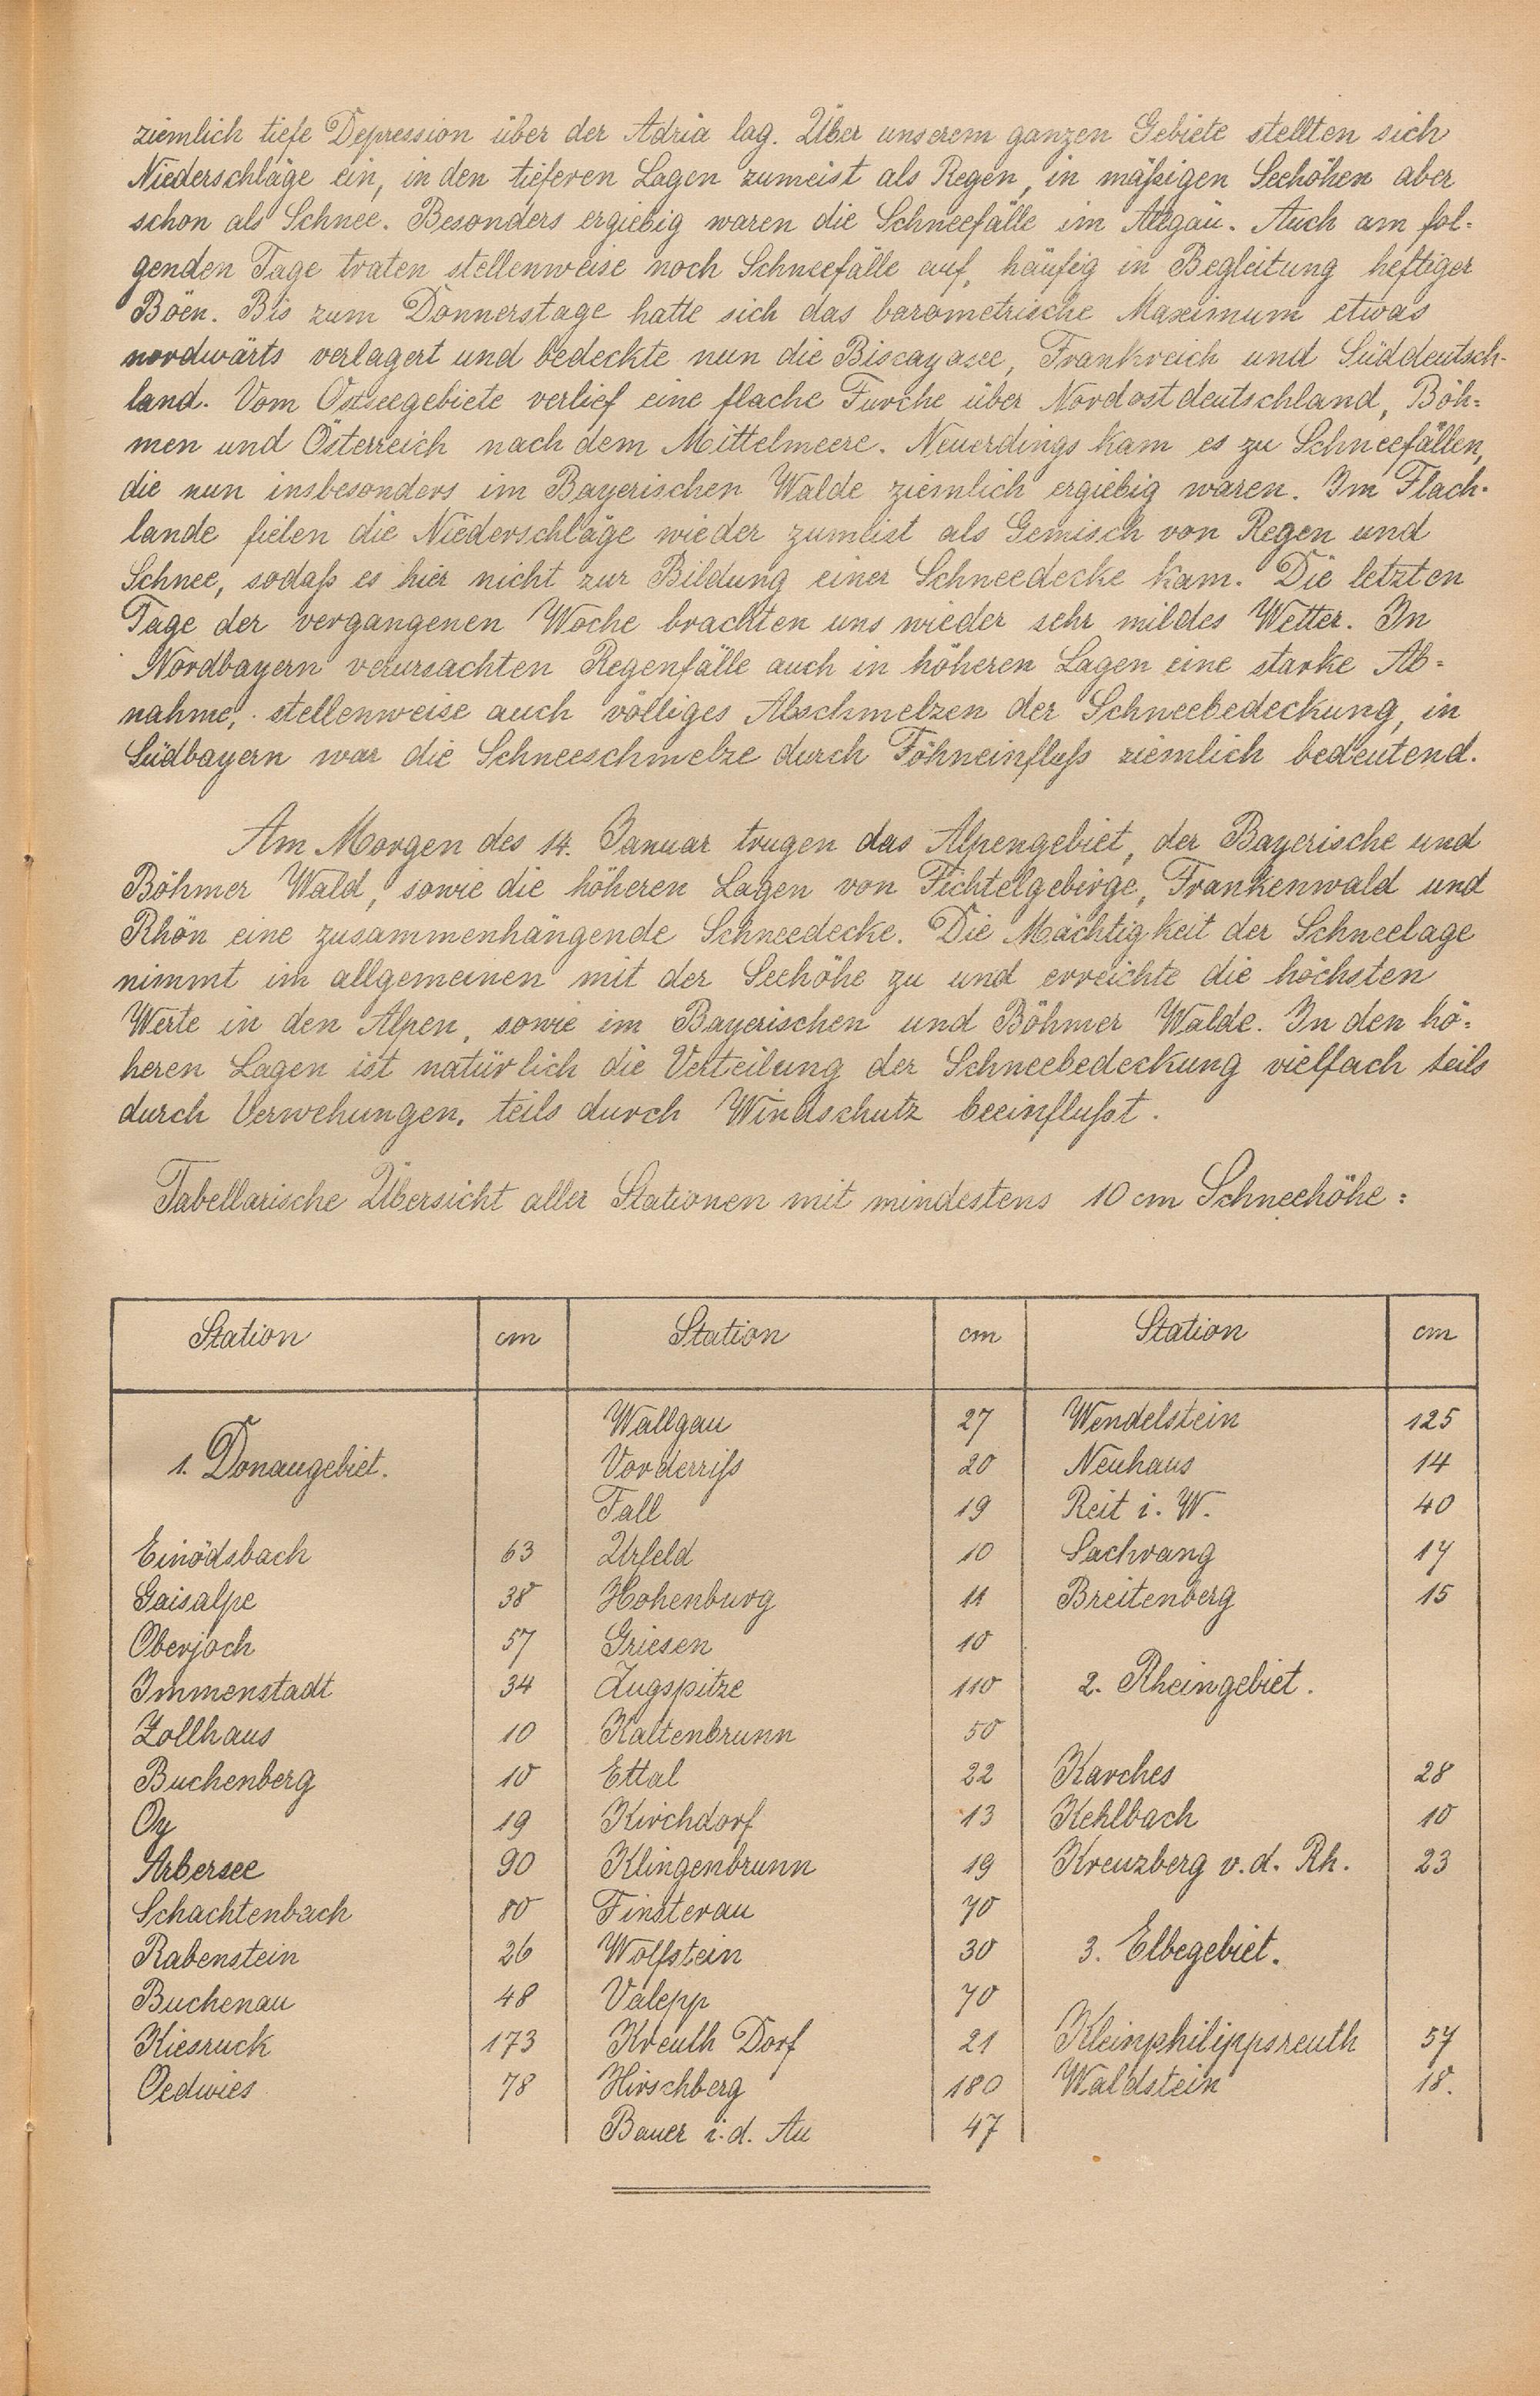 ziemlich tiefe Depression über der Adria lag. Über unserem ganzen Gebiete stellten sich
Niederschläge ein, in den tieferen Lagen zumeist als Regen, in mäßigen Seehöhen aber
schon als Schnee. Besonders ergiebig waren die Schneefälle im Allgäu. Auch am fol-
genden Tage traten stellenweise noch Schneefälle auf, häufig in Begleitung heftiger
Böen. Bis zum Donnerstage hatte sich das barometrische Maximum etwas
nordwärts verlagert und bedeckte nun die Biscayasee, Frankreich und Süddeutsch-
land. Vom Ostseegebiete verlief eine flache Furche über Nordostdeutschland, Böh-
men und Österreich nach dem Mittelmeere. Neuerdings kam es zu Schneefällen,
die nun insbesonders im Bayerischen Walde ziemlich ergiebig waren. Im Flach-
lande fielen die Niederschläge wieder zumeist als Gemisch von Regen und
Schnee, sodaß es hier nicht zur Bildung einer Schneedecke kam. Die letzten
Tage der vergangenen Woche brachten uns wieder sehr mildes Wetter. In
Nordbayern verursachten Regenfälle auch in höheren Lagen eine starke Ab-
nahme, stellenweise auch völliges Abschmelzen der Schneebedeckung, in
Südbayern war die Schneeschmelze durch Föhneinfluß ziemlich bedeutend.
Am Morgen des 14. Januar trugen das Alpengebiet, der Bayerische und
Böhmer Wald, sowie die höheren Lagen von Fichtelgebirge, Frankenwald und
Rhön eine zusammenhängende Schneedecke. Die Mächtigkeit der Schneelage
nimmt im allgemeinen mit der Seehöhe zu und erreichte die höchsten
Werte in den Alpen, sowie im Bayerischen und Böhmer Walde. In den hö-
heren Lagen ist natürlich die Verteilung der Schneebedeckung vielfach teils
durch Verwehungen, teils durch Windschutz beeinflußt.
Tabellarische Übersicht aller Stationen mit mindestens 10 cm Schneehöhe:
Station cm Station cm Station cm
Wallgau 27 Wendelstein 125
1. Donaugebiet. Vorderriß 20 Neuhaus 14
Fall 19 Reit i. W. 40
Einödsbach 63 Urfeld 10 Sachrang 17
Gaisalpe 38 Hohenburg 11 Breitenberg 15
Oberjoch 57 Griesen 10
Immenstadt 34 Zugspitze 110 2. Rheingebiet.
Zollhaus 10 Kaltenbrunn 50
Buchenberg 10 Ettal 22 Karches 28
Oy 19 Kirchdorf 13 Kehlbach 10
Arbersee 90 Klingenbrunn 19 Kreuzberg v.d. Rh. 23
Schachtenbach 80 Finsterau 70
Rabenstein 26 Wolfstein 30 3. Elbegebiet.
Buchenau 48 Valepp 70
Kiesruck 173 Kreuth Dorf 21 Kleinphilippsreuth 57
Oedwies 78 Hirschberg 180 Waldstein 18.
Bauer i.d. Au 47